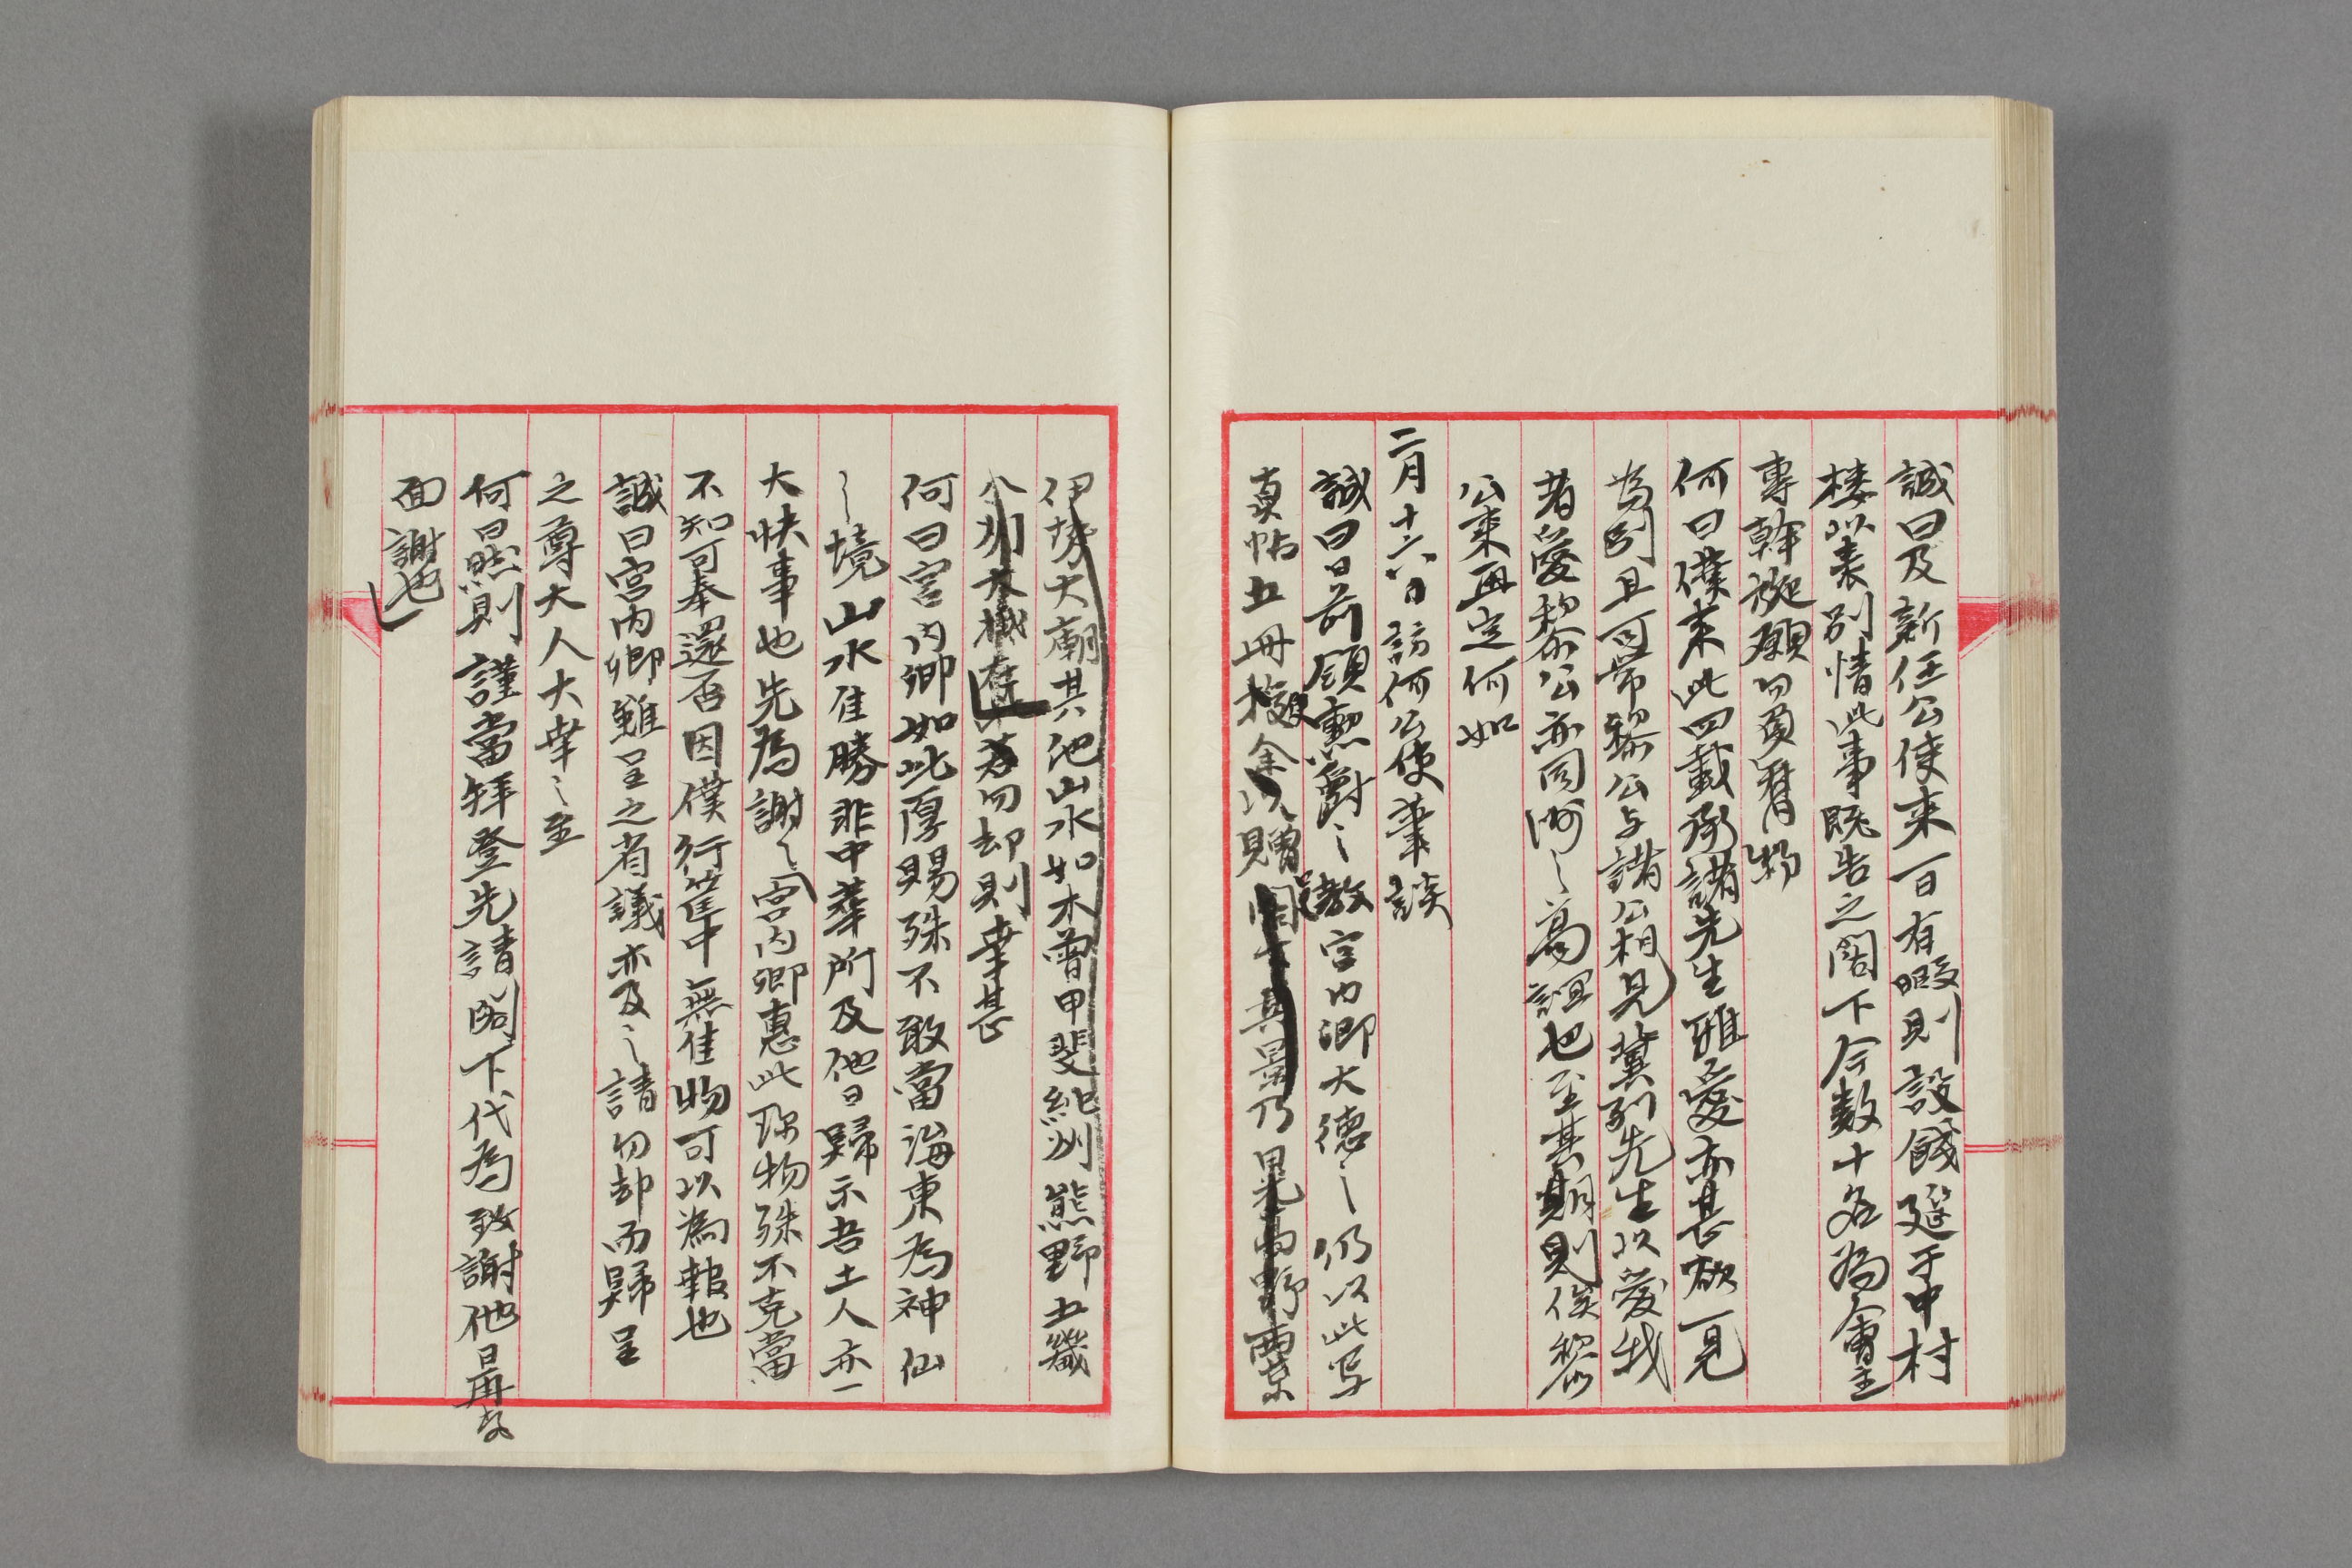 誠曰及新任公使来一日有暇則設餞筵于中村
楼以表別情此事既告之閣下今数十名為會主
專幹旋願勿負舊約
何曰僕来此四載承諸先生雅愛亦甚欲一見
為別且可帯黎公与諸公相見冀列先生以愛我
者愛黎公亦同洲之高誼也至其期則俟黎
公来再定何如
二月十六日訪何公使筆談
誠曰日前領勲爵之教宮内卿大德之仍以此写
真帖五冊授余以贈閣下其景乃晃高野両京
伊勢大廟其他山水如木曽甲斐紀州熊野五畿
八州大概存焉若勿却則幸甚
何曰宮内卿如此厚賜殊不敢當海東為神仙
之境山水佳勝非中華所及他日歸示吾土人亦一
大快事也先為謝之宮内卿惠此珎物殊不克當
不知可奉還否因僕行篋中無佳物可以為報也
誠曰宮内卿雖呈之省議亦及之請勿却而歸呈
之尊大人大幸之至
何曰然則謹當拜登先請閣下代為致謝他日再
面謝也